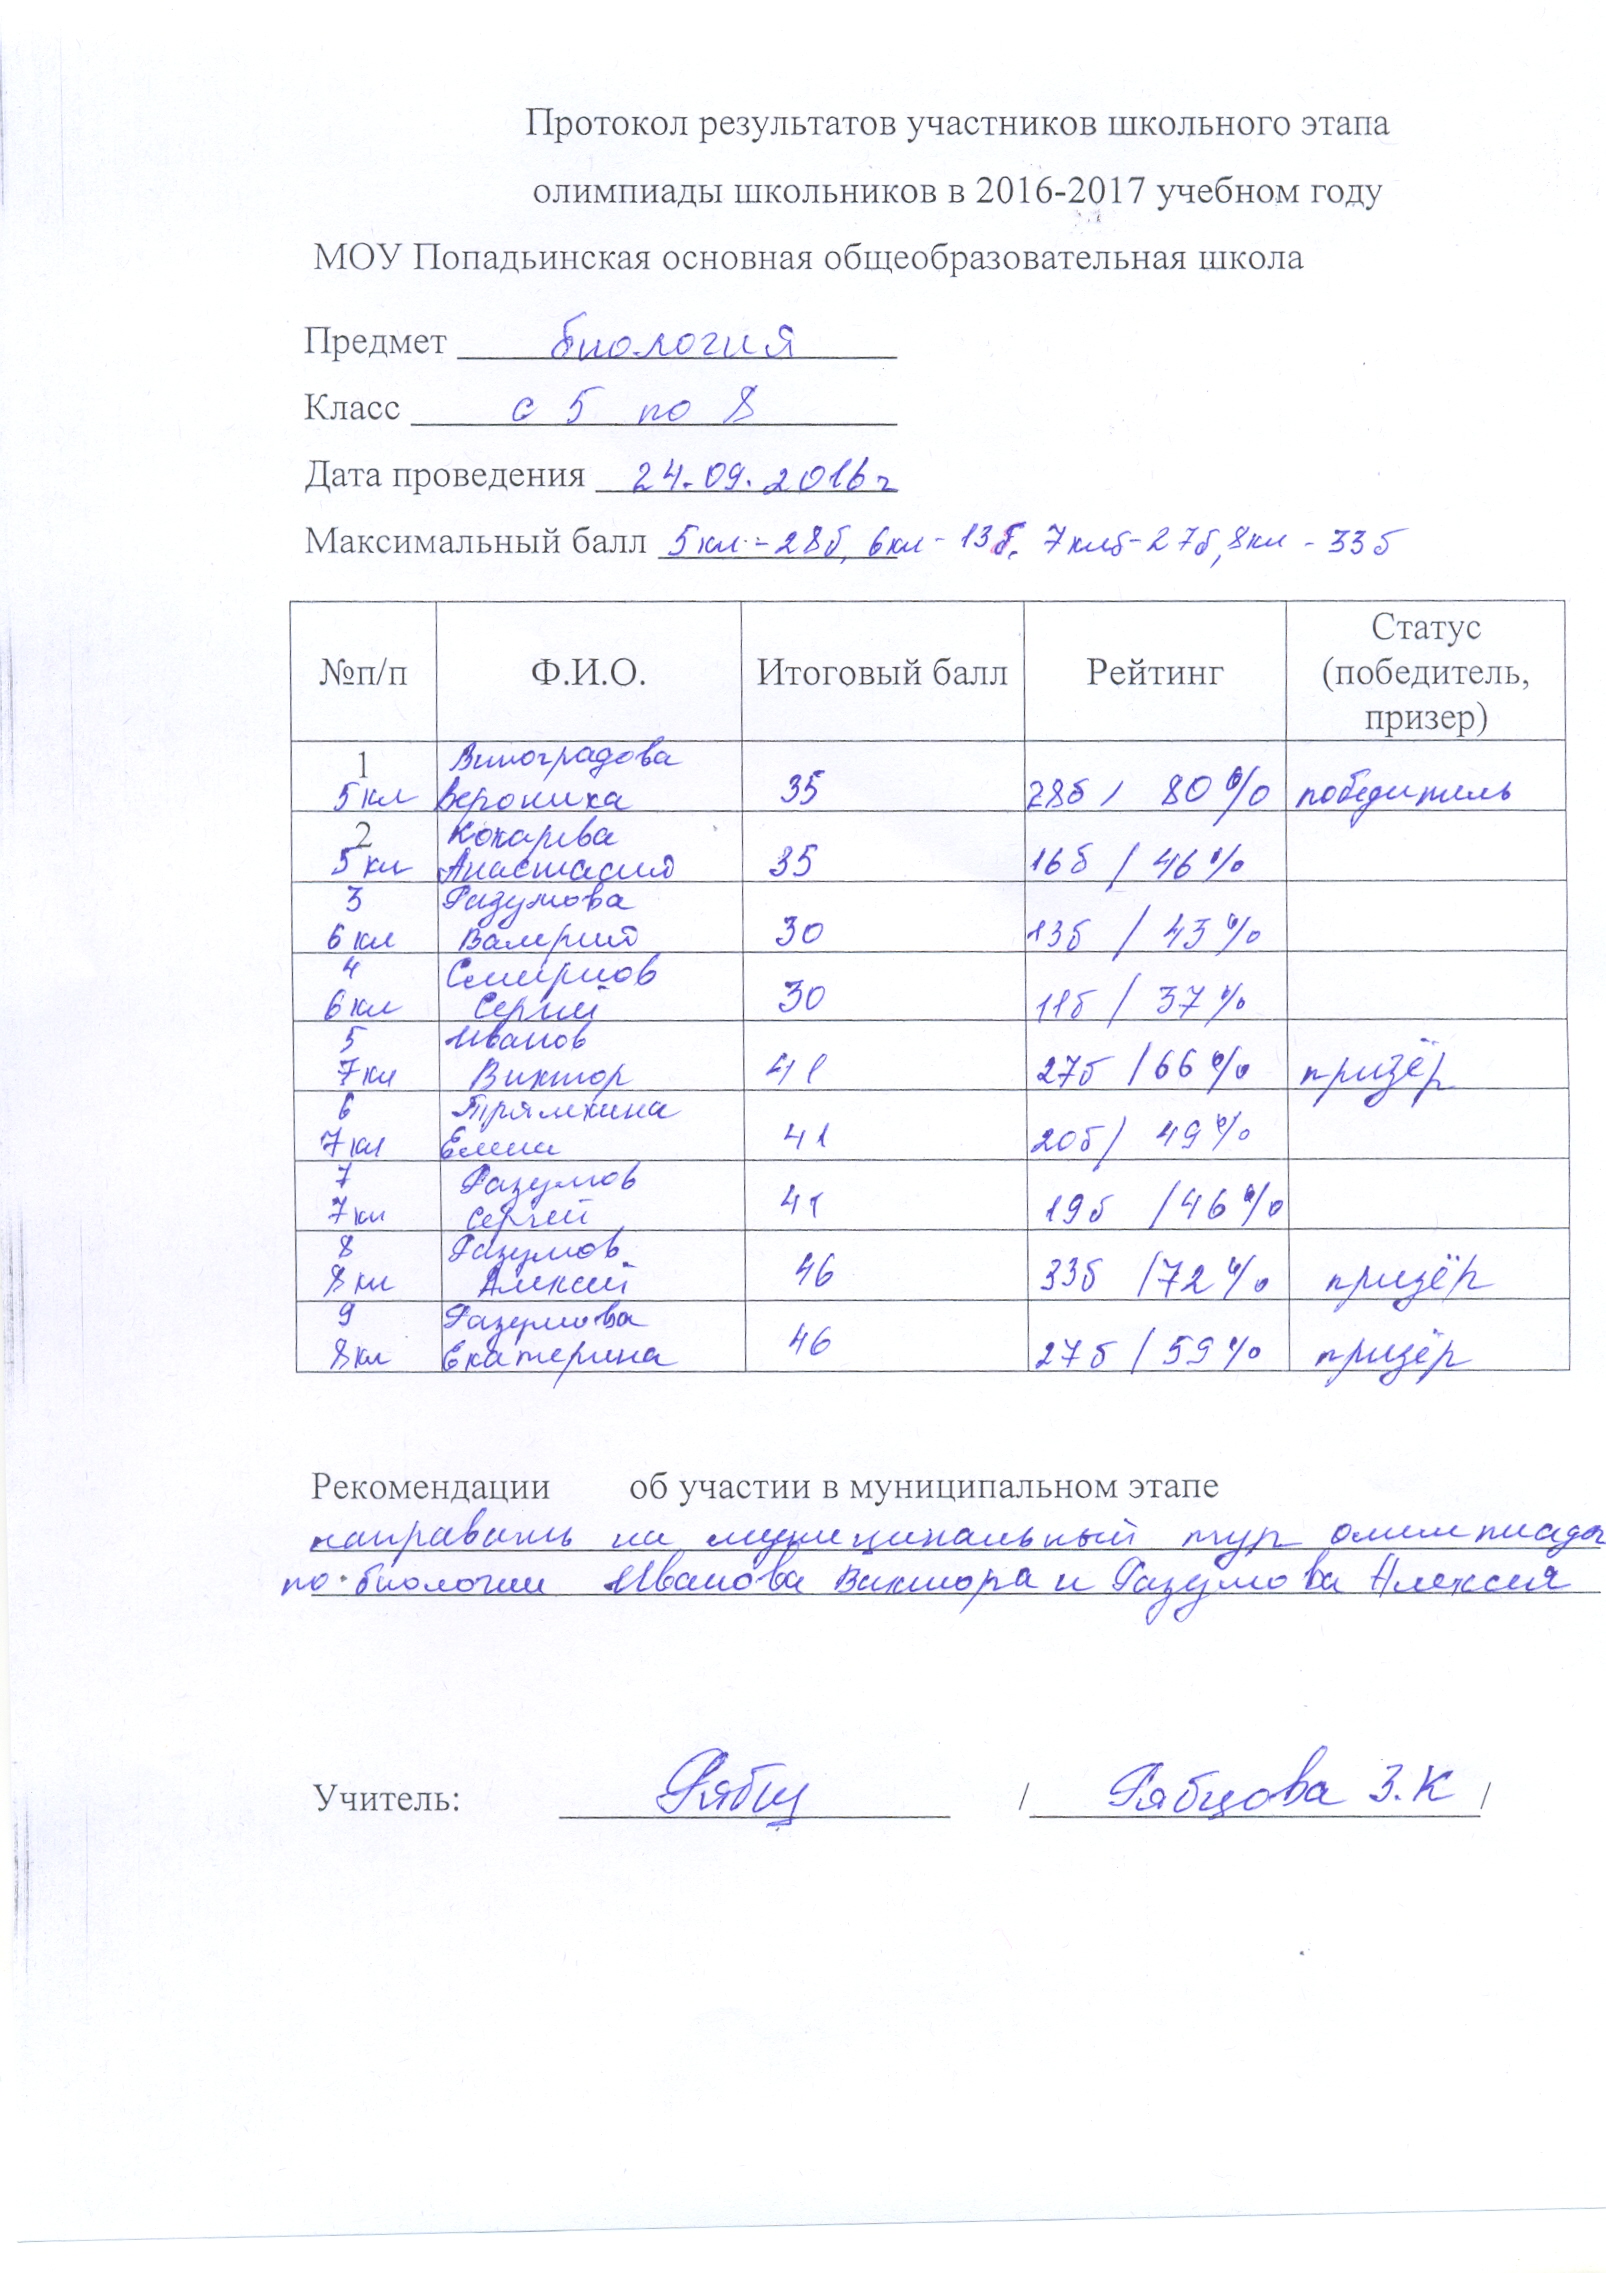 Протокол результатов участников школьного этапа
олимпиады школьников в 2016-2017 учебном году
МОУ Попадьинская основная общеобразовательная школа
Предмет биология
Класс с 5 по 8
Дата проведения 24.09.2016г
Максимальный балл 5кл.-28б, 6кл-13б, 7клб-27б, 8кл-33б
№п/п Ф.И.О. Итоговый балл Рейтинг Статус (победитель, призер)
1 5кл Виноградова Вероника 35 28б / 80% победитель
2 5кл Кокарева Анастасия 35 16б / 46%
3 6кл Разумова Валерия 30 13б / 43%
4 6кл Смирнов Сергей 30 11б / 37%
5 7кл Иванов Виктор 41 27б / 66% призёр
6 7кл Трямкина Елена 41 20б / 49%
7 7кл Разумов Сергей 41 19б / 46%
8 8кл Разумов Алексей 46 33б / 72% призёр
9 8кл Разумова Екатерина 46 27б / 59% призёр
Рекомендации об участии в муниципальном этапе
направить на муниципальный тур олимпиады
по биологии Иванова Виктора и Разумова Алексея
Учитель: Рябц / Рябцова З.К /